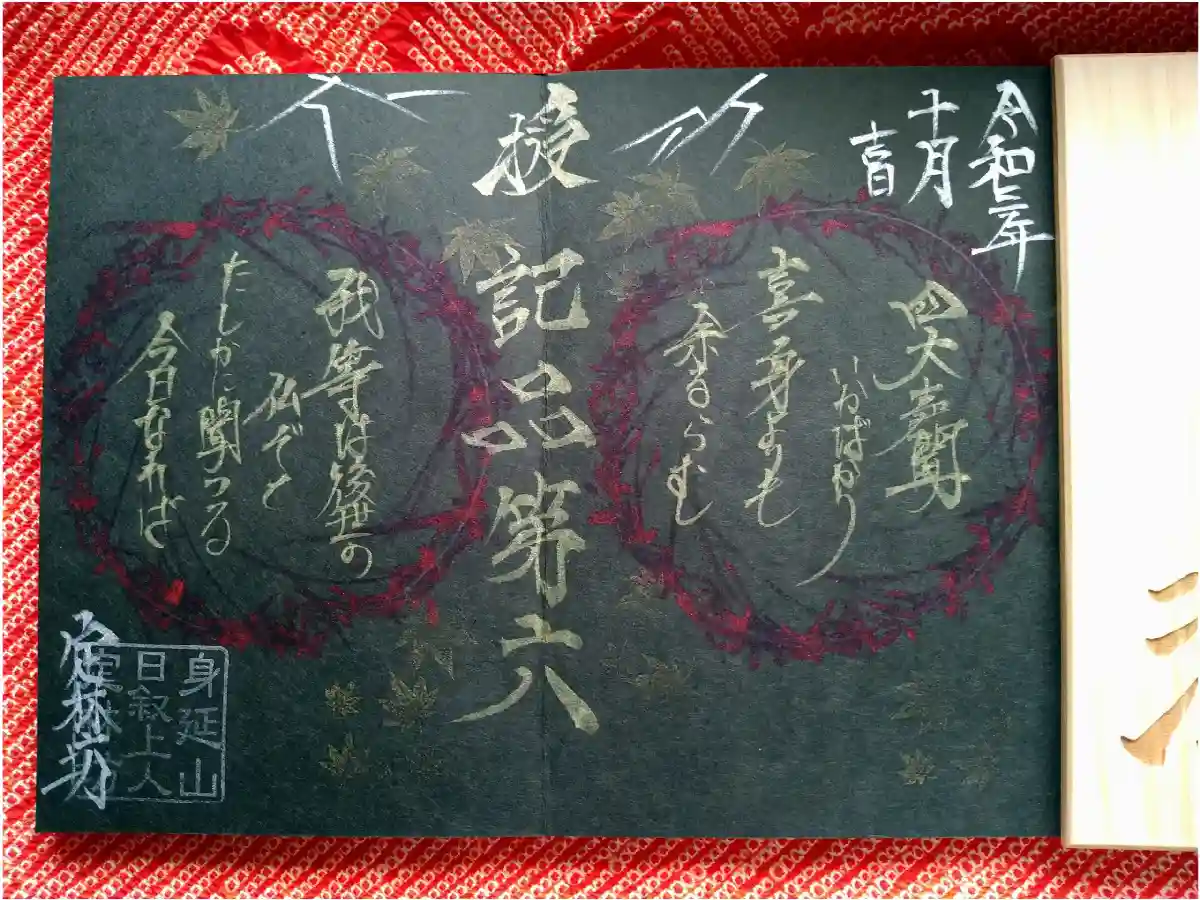 令和三年
十月
吉日
四大声聞
いかばかり
喜身よりも
余るらむ
授記品第六
我等は後世の
仏ぞと
たしかに聞つる
今日なれば
身延山
日叙上人
覚林坊